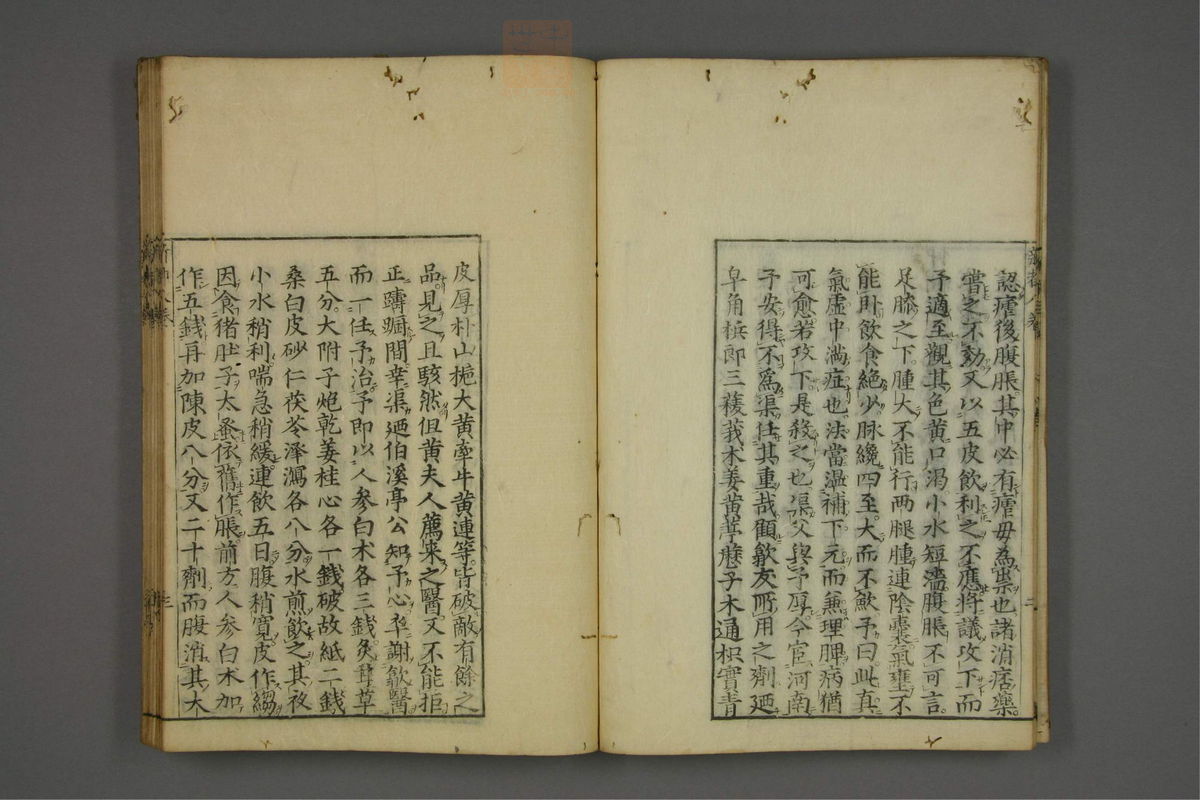 認瘧後腹脹其中必有瘧毋為祟也諸消痞藥
嘗之不効又以五皮飲利之不應將議攻下而
予適至觀其色黄口渴小水短濇腹脹不可言
足膝之下腫大不能行两腿腫連陰囊氣壅不
能卧飲食絶少脉纔四至大而不歛予曰此真
氣虚中滿症也法當温補下元而兼理脾病猶
可愈若攻下是殺之也渠父與予厚今官河南
予安得不為渠任其重哉顧歙友所用之劑廼
皁角檳郎三稜莪术姜黄葶藶子木通枳實青
皮厚朴山梔大黄牽牛黄連等皆破敵有餘之
品見之且駭然但黄夫人薦来之醫又不能拒
正躊蹰間幸渠廼伯溪亭公知予心卒謝歙醫
而一任予治予即以人參白术各三錢炙甘草
五分大附子炮乾姜桂心各一錢破故紙二錢
桑白皮砂仁茯苓泽瀉各八分水煎飲之其夜
小水稍利喘急稍緩連飲五日腹稍寛皮作縐
因食猪肚子太蚤依舊作脹前方人參白术加
作五錢再加陳皮八分又二十劑而腹消其大